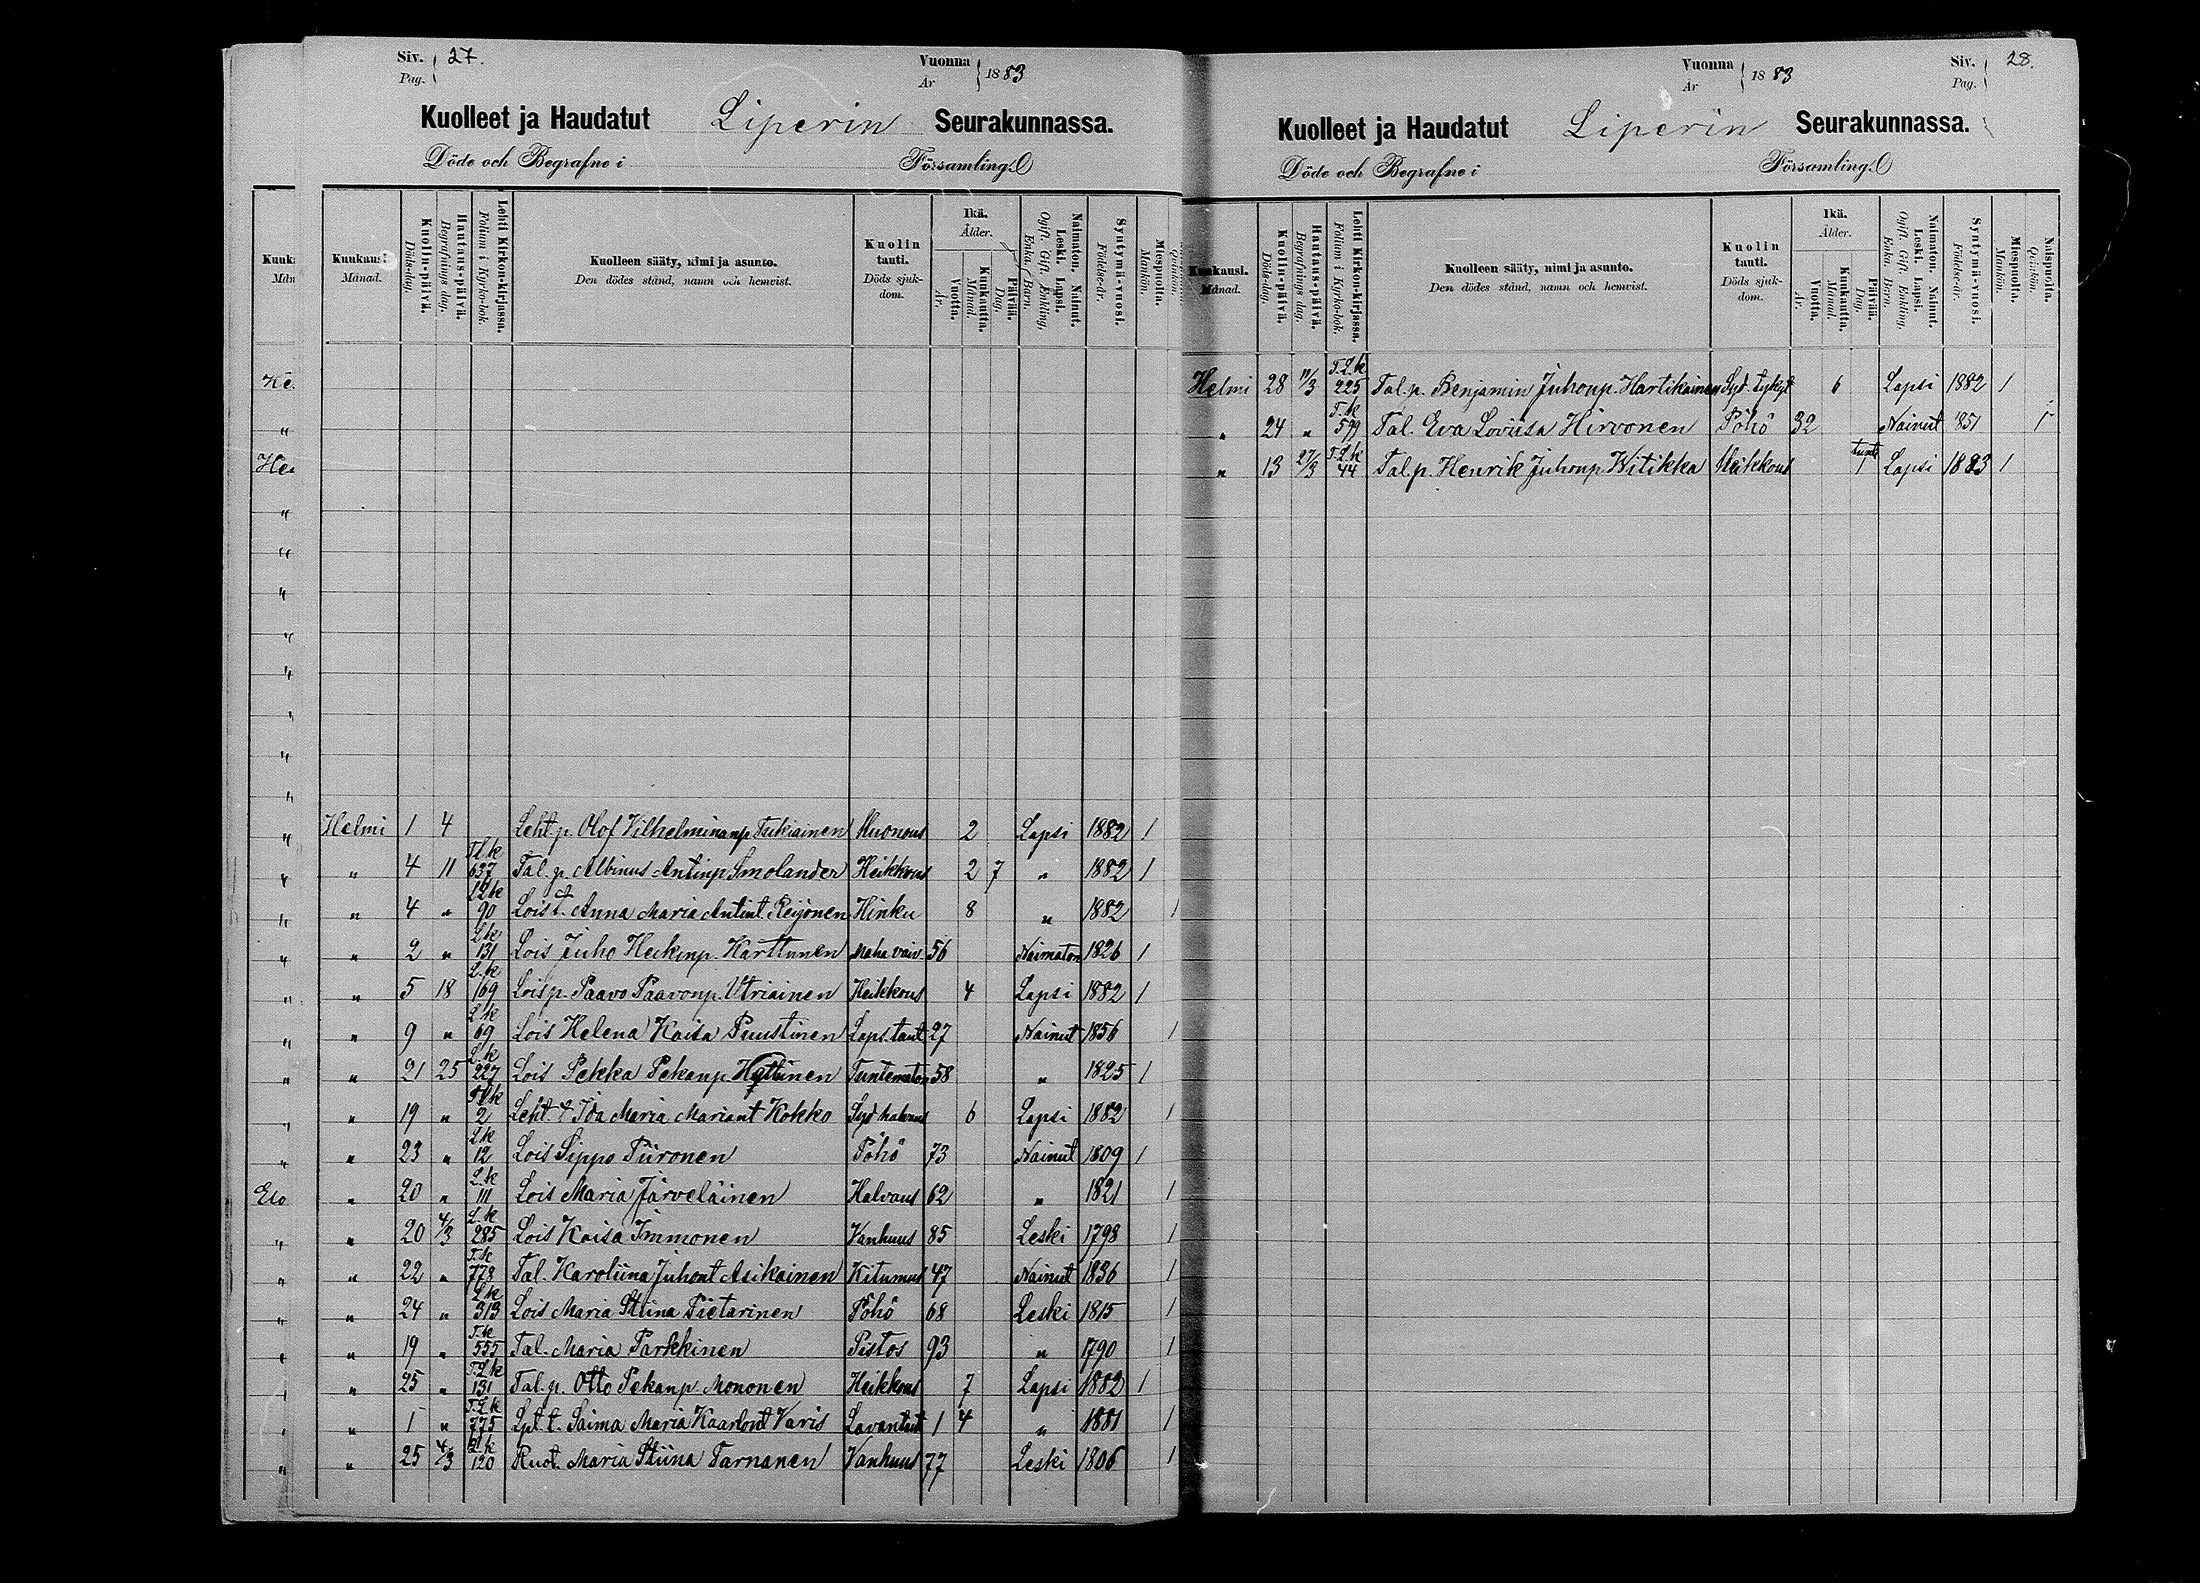 Siv. 27.
Pag.
Vuonna 1883
År
Kuolleet ja Haudatut Liperin Seurakunnassa.
Döde och Begrafne i Församling.
Kuukausi. Månad. Kuolin-päivä. Döds-dag. Hautaus-päivä. Begrafnings dag. Lehti Kirkon-kirjassa. Folium i Kyrko-bok. Kuolleen sääty, nimi ja asunto. Den dödes stånd, namn och hemvist. Kuolin tauti. Döds sjukdom. Ikä. Ålder. Vuotta. År. Kuukautta. Månad. Päivää. Dag. Naimaton. Nainut. Leski. Lapsi. Ogift. Gift. Enkling, Enka. Barn. Syntymä-vuosi. Födelse-år. Miespuolta. Mankön.
Helmi 1 4 Leht.p. Olof Vilhelminanp. Tsikiainen Kuonous 2 Lapsi 1882 1
" 4 11 T.L.k 637 Tal.p. Albinus Antinp Smolander Heikkous 2 7 " 1882 1
" 4 " L.k 90 Lois t. Anna Maria Antint. Reijonen Hinku 8 " 1882 1
" 2 " L.k 131 Lois Juho Heikinp. Karttunen Maha vaiv. 56 Naimaton 1826 1
" 5 18 L.k 169 Loisp. Paavo Paavonp. Utriainen Heikkous 4 Lapsi 1882 1
" 9 " L.k 69 Lois Helena Kaisa Puustinen Laps. taut 27 Nainut 1856 1
" 21 25 L.k 227 Lois Pekka Pekanp. Hattinen Tuntematon 58 " 1825 1
" 19 " T.L.k 2 Leht t Ida Maria Mariant Kokko Syd halvaus 6 Lapsi 1882 1
" 23 " L.k 12 Lois Sippo Piironen Pöhö 73 Nainut 1809 1
" 20 " L.k 111 Lois Maria Järveläinen Halvaus 62 " 1821 1
" 20 4/3 L.k 285 Lois Kaisa Immonen Vanhuus 85 Leski 1798 1
" 22 " T.k 778 Tal. Karoliina Juhont Asikainen Kitumus 47 Nainut 1836 1
" 24 " L.k 313 Lois Maria Stiina Pietarinen Pöhö 68 Leski 1815 1
" 19 " T.k 555 Tal. Maria Parkkinen Pistos 93 " 1790 1
" 25 " T.L.k 131 Tal.p. Otto Pekanp. Mononen Heikkous 7 Lapsi 1882 1
" 1 " T.L.k 775 Lpt.t. Saima Maria Kaarlont Varis Lavantaut 1 4 " 1881 1
" 25 4/3 L.k 120 Ruot. Maria Stiina Tarnanen Vanhuus 77 Leski 1806 1
Siv. 28.
Pag.
Vuonna 1883
År
Kuolleet ja Haudatut Liperin Seurakunnassa.
Döde och Begrafne i Församling.
Kuukausi. Månad. Kuolin-päivä. Döds-dag. Hautaus-päivä. Begrafnings dag. Lehti Kirkon-kirjassa. Folium i Kyrko-bok. Kuolleen sääty, nimi ja asunto. Den dödes stånd, namn och hemvist. Kuolin tauti. Döds sjukdom. Ikä. Ålder. Vuotta. År. Kuukautta. Månad. Päivää. Dag. Naimaton. Nainut. Leski. Lapsi. Ogift. Gift. Enkling, Enka. Barn. Syntymä-vuosi. Födelse-år. Miespuolta. Mankön. Naispuolta. Qvinkön.
Helmi 28 11/3 T.L.k 225 Tal.p. Benjamin Juhonp. Hartikainen Syd. tykyt 6 Lapsi 1882 1
" 24 " T.k 599 Tal. Eva Loviisa Hirvonen Pöhö 32 Nainut 1851 1
" 13 27/3 T.L.k 44 Tal.p. Henrik Juhonp Witikka Heikkous 1 tunt Lapsi 1883 1